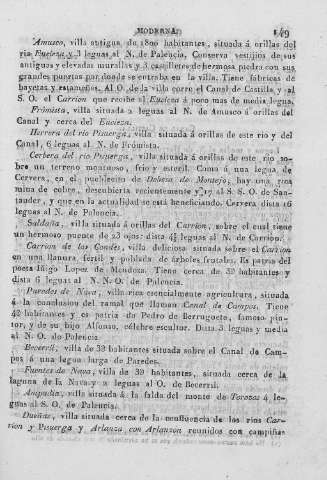 MODERNA. 149
Amusco, villa antigua de 1800 habitantes, situada á orillas del
rio Eucieza y 3 leguas al N. de Palencia. Conserva vestijios de sus
antiguas y elevadas murallas y 3 casilleres de hermosa piedra con sus
grandes puertas por donde se entraba en la villa. Tiene fabricas de
bayetas y estameñas. Al O. de la villa corre el Canal de Castilla, y al
S. O. el Carrion que recibe al Eucieza á poco mas de media legua.
Frómista, villa situada 2 leguas al N. de Amusco á orillas del
Canal y cerca del Eucieza.
Herrera del rio Pisuerga, villa situada á orillas de este rio y del
Canal, 6 leguas al N. de Frómista.
Cerbera del rio Pisuerga, villa situada á orillas de este rio so-
bre un terreno montuoso, frio y esteril. Como á una legua de
Cervera, en el pueblecito de Dehesa de Montejo, hay una rica
mina de cobre, descubierta recientemente y al S. S. O. de San-
tander, y que en la actualidad se está beneficiando. Cervera dista 16
leguas al N. de Palencia.
Saldaña, villa situada á orillas del Carrion, sobre el cual tiene
un hermoso puente de 23 ojos: dista leguas al N. de Carrion.
Carrion de los Condes, villa deliciosa situada sobre el Carrion
en una llanura fértil y poblada de árboles frutales. Es patria del
poeta Iñigo Lopez de Mendoza. Tiene cerca de 3º habitantes y
dista 6 leguas al N. N. O. de Palencia.
Paredes de Nava, villa rica esencialmente agricultora, situada
á la conclusion del ramal que llaman Canal de Campos. Tiene
4º habitantes y es patria de Pedro de Berruguete, famoso pin-
tor, y de su hijo Alfonso, célebre escultor. Dista 3 leguas y media
al N. O. de Palencia.
Becerril, villa de 3º habitantes situada sobre el Canal de Cam-
pos á una legua larga de Paredes.
Fuentes de Nava, villa de 3º habitantes, situada cerca de la
laguna de la Nava y 2 leguas al O. de Becerril.
Ampudia, villa situada á la falda del monte de Torozos 4 le-
guas al S. O. de Palencia.
Dueñas, villa situada cerca de la confluencia de los rios Car-
rion y Pisuerga y Arlanza con Arlanzon reunidos con campiñas